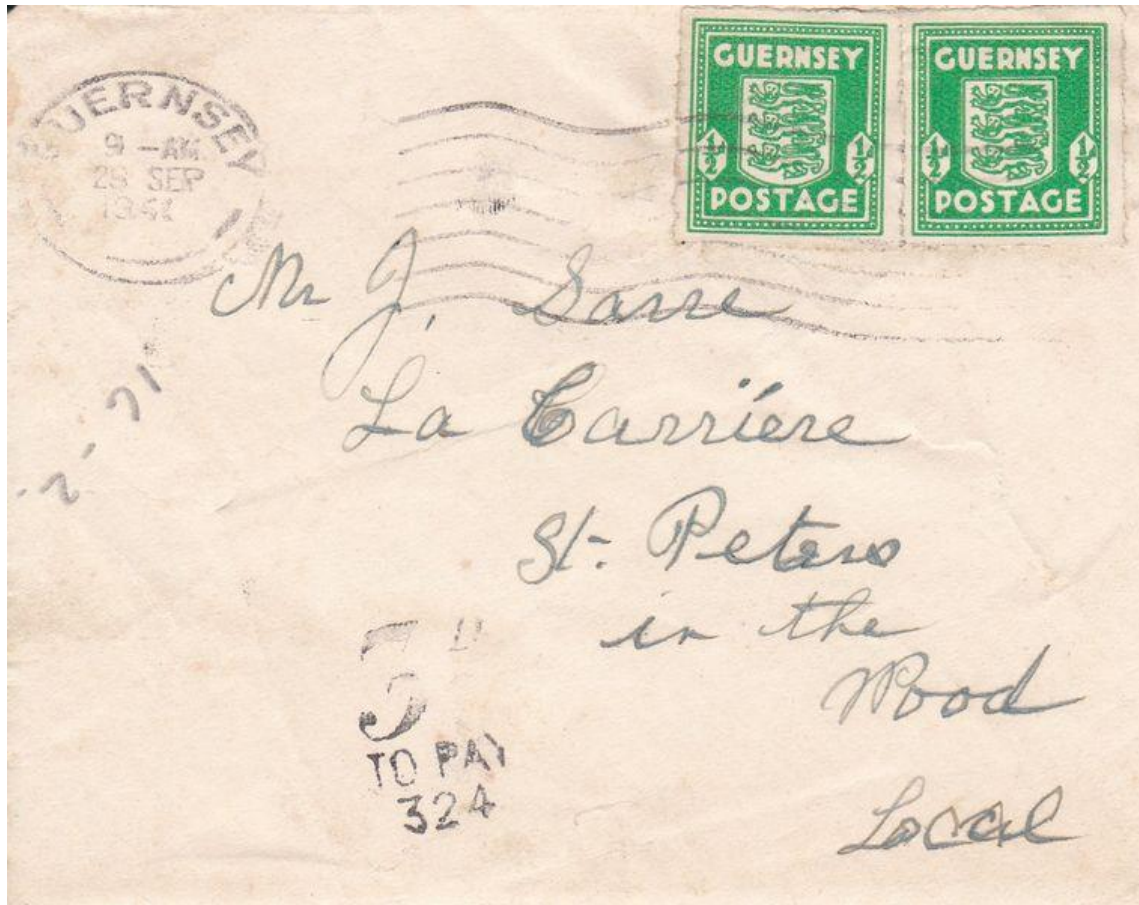 GUERNSEY
9 - AM
SEP
GUERNSEY
½ ½
POSTAGE
GUERNSEY
½ ½
POSTAGE
Mr J. Sarre
La Carriére
St. Peters
in the
Wood
Local
TO PAY
324